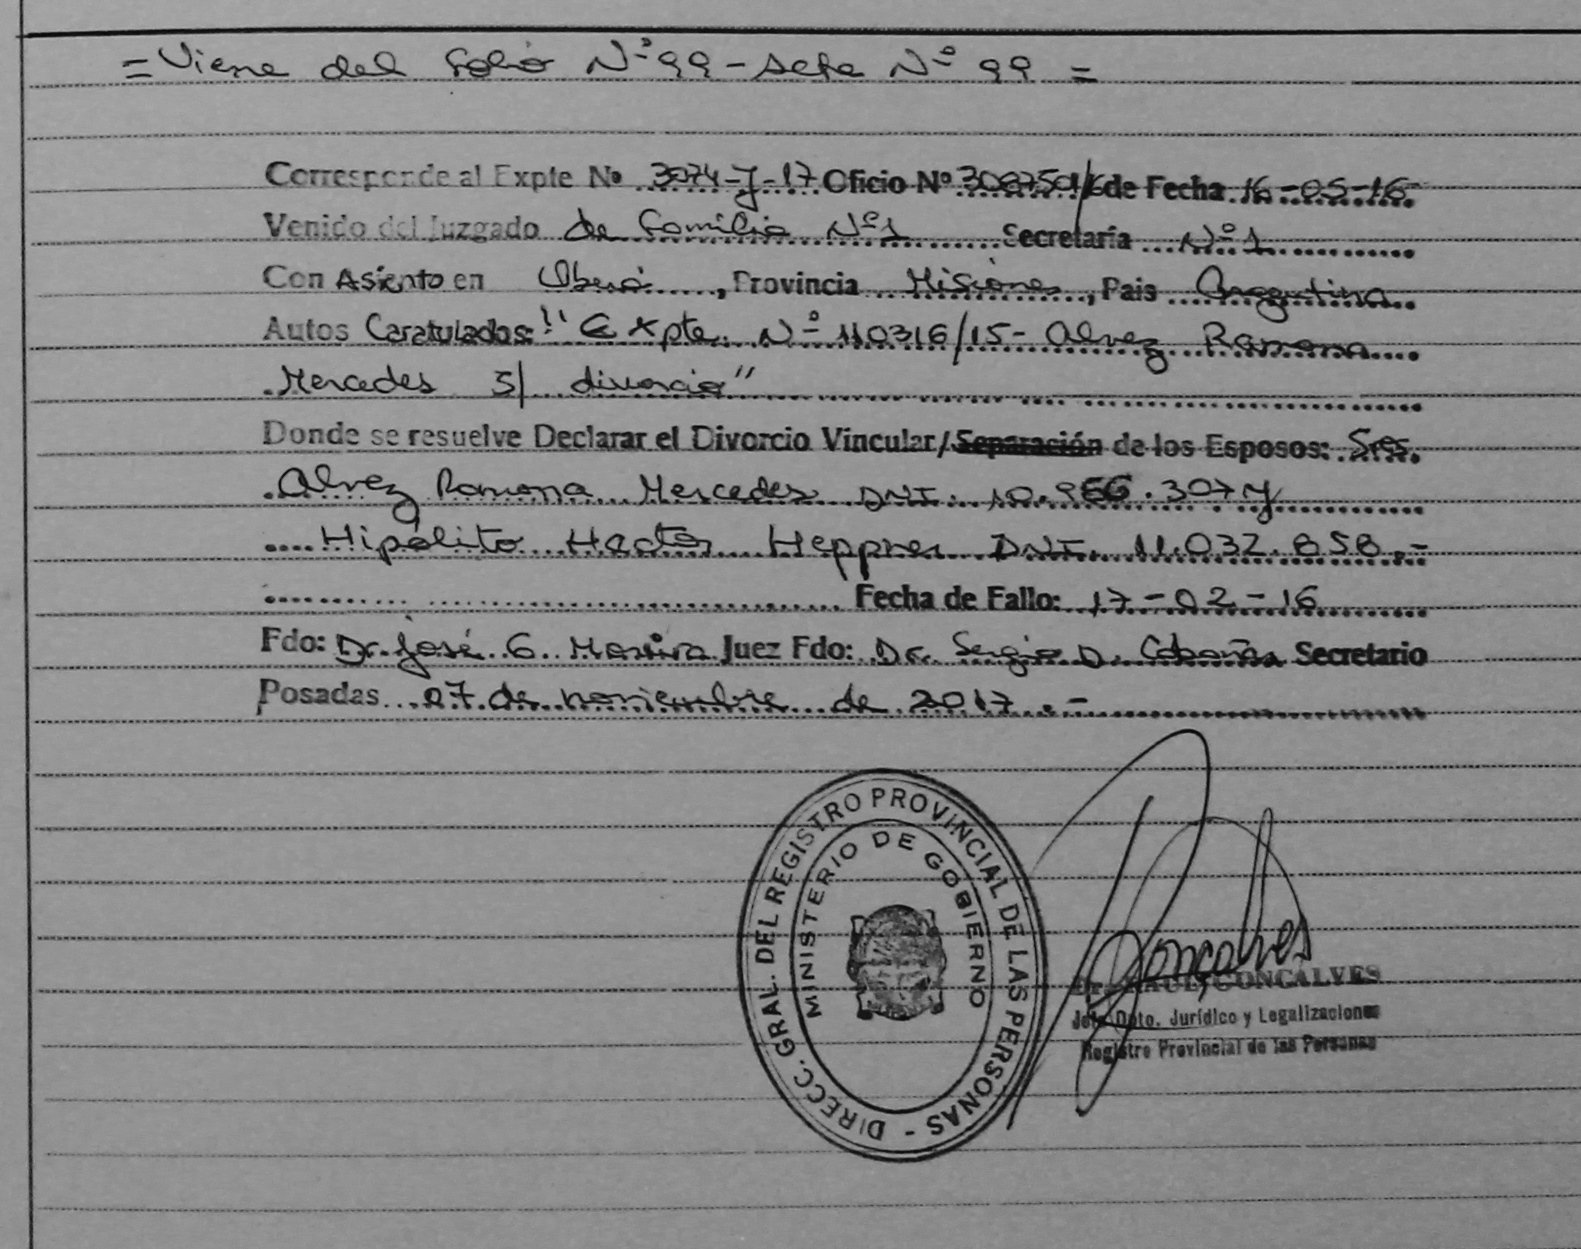 = Viene del folio Nº 99 - Acta Nº 99 =
Corresponde al Expte Nº 3074-J-17 Oficio Nº 308750/16 de Fecha 16-05-16-
Venido del Juzgado de Familia Nº 1 Secretaría Nº 1
Con Asiento en Oberá, Provincia Misiones, Pais Argentina
Autos Caratulados: "Expte. Nº 110316/15- Alvez Ramona
Mercedes S/ divorcio"
Donde se resuelve Declarar el Divorcio Vincular/Separación de los Esposos: Sres.
Alvez Ramona Mercedes DNI. 10.966.307 y
Hipólito Hector Heppner DNI. 11.032.858.-
Fecha de Fallo: 17-02-16
Fdo: Dr. José G. Juez Fdo: Dr. Sergio D. Cabaña Secretario
Posadas 07 de noviembre de 2017.-
DIRECC. GRAL. DEL REGISTRO PROVINCIAL DE LAS PERSONAS -
MINISTERIO DE GOBIERNO
Gonçalves
Dr. RAUL GONCALVES
Jefe Dpto. Jurídico y Legalizaciones
Registro Provincial de las Personas